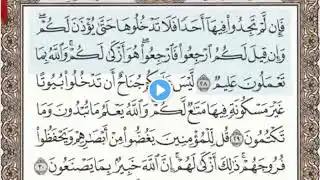 فَإِن لَّمْ تَجِدُوا۟ فِيهَآ أَحَدًا فَلَا تَدْخُلُوهَا حَتَّىٰ يُؤْذَنَ لَكُمْ ۖ
وَإِن قِيلَ لَكُمُ ٱرْجِعُوا۟ فَٱرْجِعُوا۟ ۖ هُوَ أَزْكَىٰ لَكُمْ ۚ وَٱللَّهُ بِمَا
تَعْمَلُونَ عَلِيمٌ ٢٨ لَّيْسَ عَلَيْكُمْ جُنَاحٌ أَن تَدْخُلُوا۟ بُيُوتًا
غَيْرَ مَسْكُونَةٍ فِيهَا مَتَٰعٌ لَّكُمْ ۚ وَٱللَّهُ يَعْلَمُ مَا تُبْدُونَ وَمَا
تَكْتُمُونَ ٢٩ قُل لِّلْمُؤْمِنِينَ يَغُضُّوا۟ مِنْ أَبْصَٰرِهِمْ وَيَحْفَظُوا۟
فُرُوجَهُمْ ۚ ذَٰلِكَ أَزْكَىٰ لَهُمْ ۗ إِنَّ ٱللَّهَ خَبِيرٌۢ بِمَا يَصْنَعُونَ ٣٠